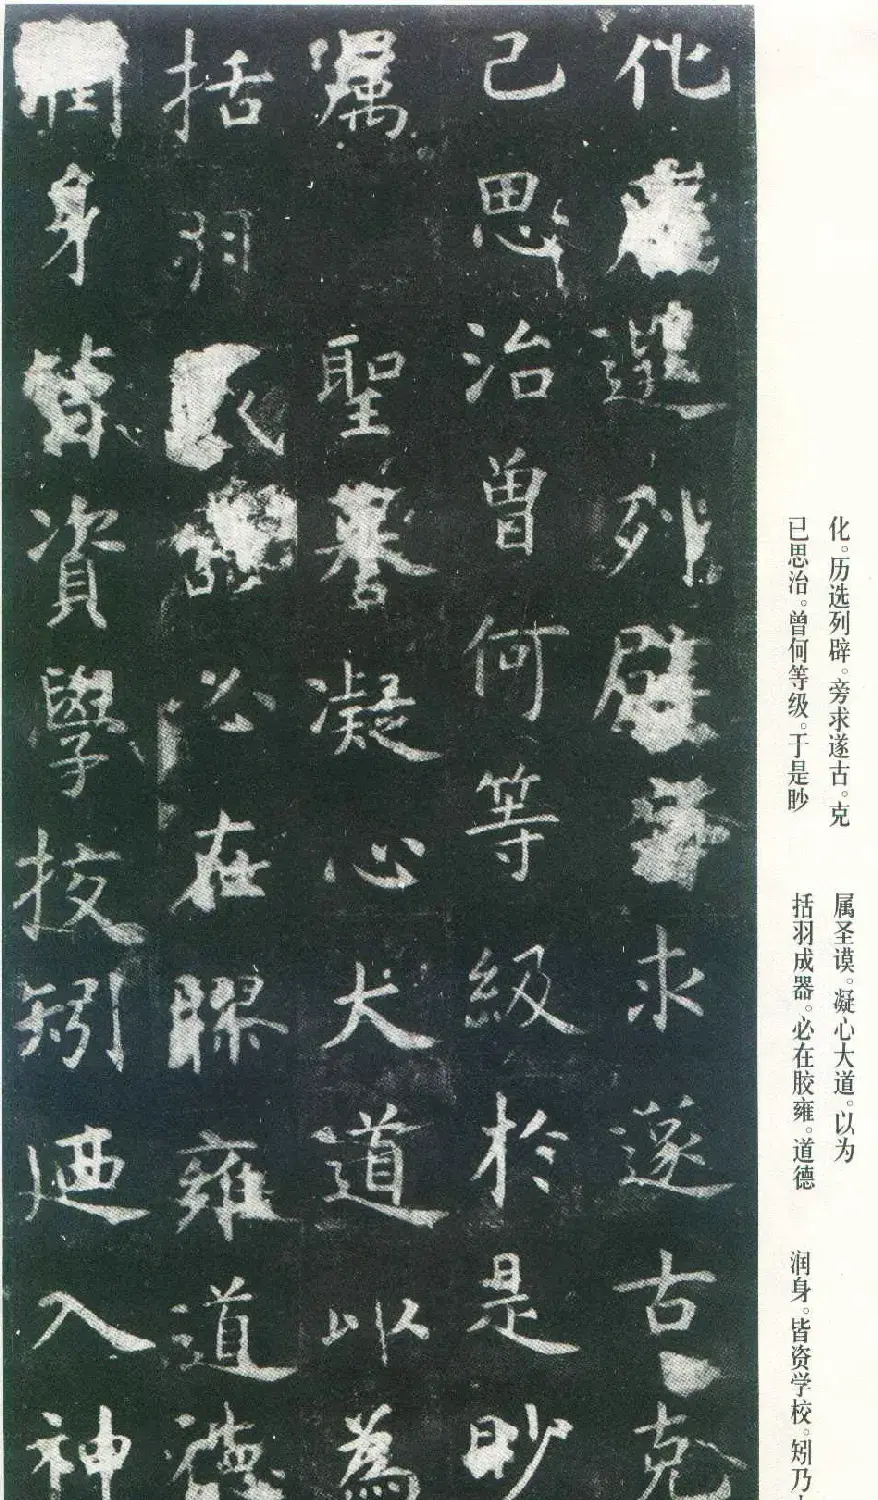 化歷選列辟旁求遂古克
己思治曾何等級於是眇
属聖謩凝心大道以為
括羽成器必在膠雍道德
潤身皆資學挍矧迺入神
化。历选列辟。旁求遂古。克
已思治。曾何等级。于是眇
属圣谟。凝心大道。以为
括羽成器。必在胶雍。道德
润身。皆资学校。矧乃